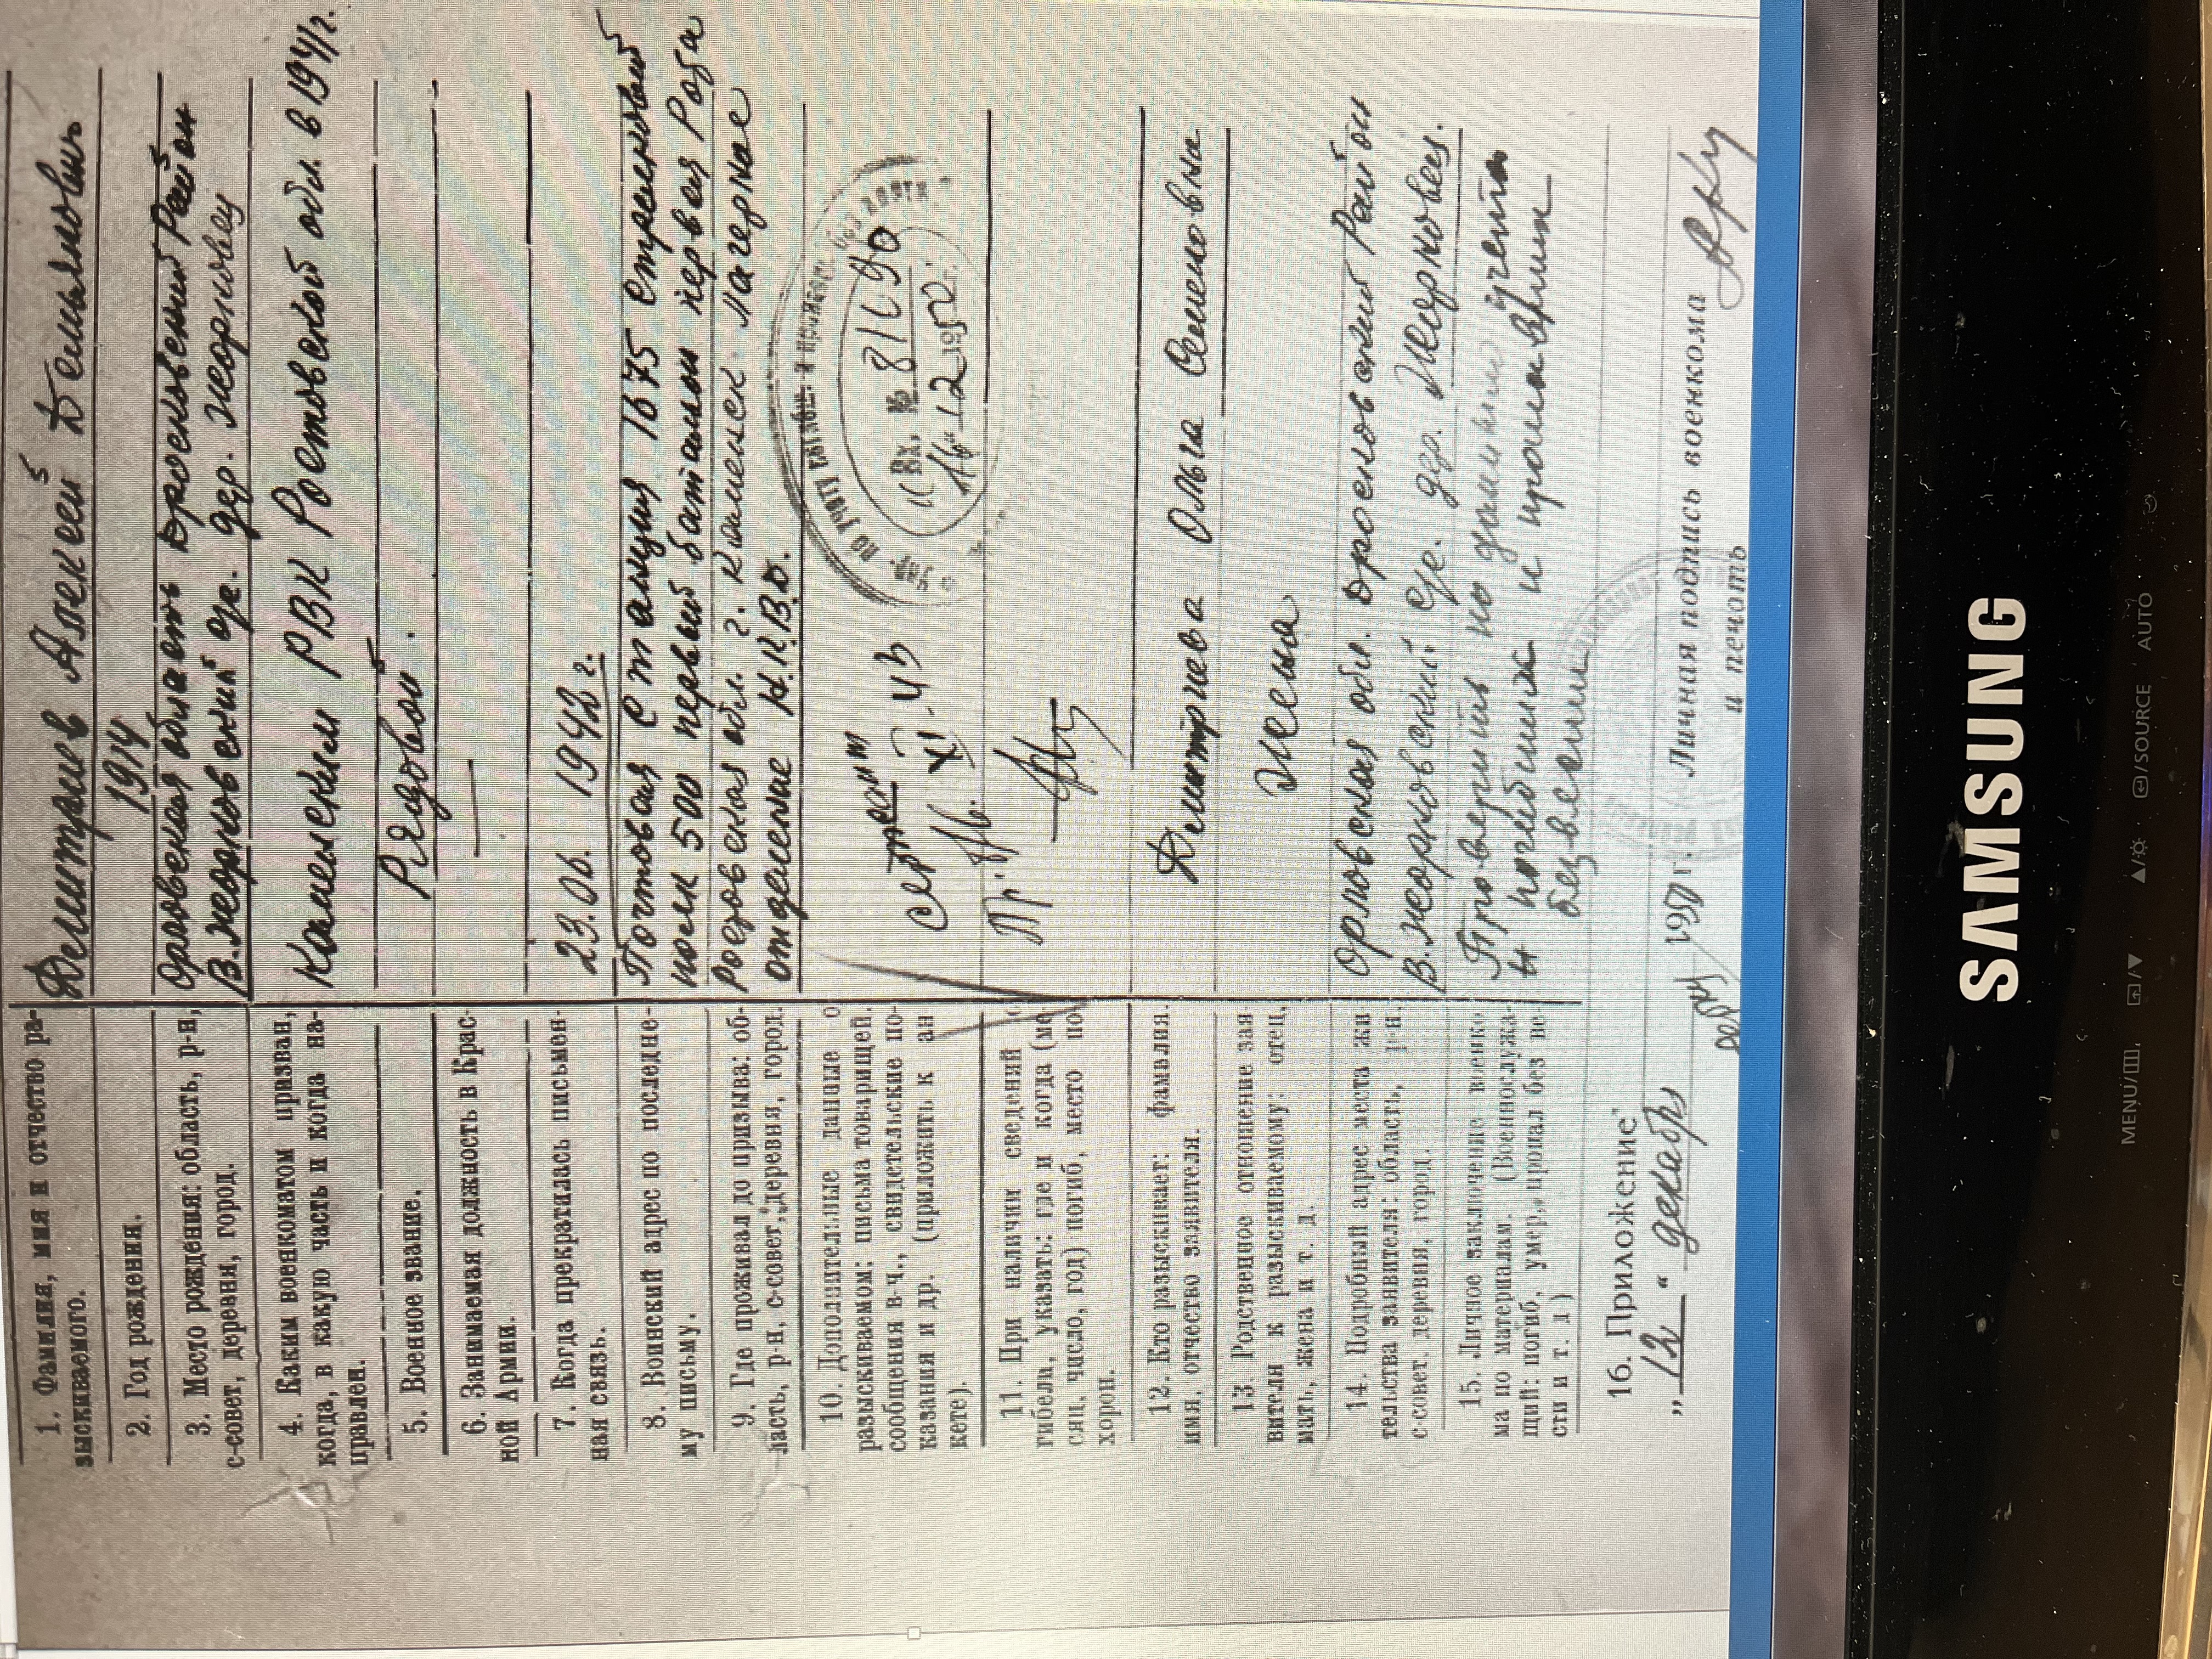 1. Фамилия, имя и отчество ра-
зыскиваемого.
Дмитриев Алексей Демьянович
2. Год рождения.
1914
3. Место рождения: область, р-н,
с-совет, деревня, город.
Орловская область Дросковский Район
В.Жерновский с/с. дер. Жерновец
4. Каким военкоматом призван,
когда, в какую часть и когда на-
правлен.
Каменским РВК Ростовской обл. в 1941г.
5. Военное звание.
Рядовой.
6. Занимаемая должность в Крас-
ной Армии.
—
7. Когда прекратилась письмен-
ная связь.
23.06. 1942 г.
8. Воинский адрес по последне-
му письму.
Почтовая Станция 1675 стрелковый
полк 500 первый батальон первая Рота
9. Где проживал до призыва: об-
ласть, р-н, с-совет, деревня, город.
Ростовская обл. г. Каменск Лагерное
отделение Н.К.В.Д.
10. Дополнительные данные о
разыскиваемом: письма товарищей,
сообщения в-ч., свидетельские по-
казания и др. (приложить к ан
кете).
Вх. № 81690
16 12 1950г.
11. При наличии сведений о
гибели, указать: где и когда (ме
сяц, число, год) погиб, место по
хорон.
12. Кто разыскивает: фамилия.
имя, отчество заявителя.
Дмитриева Ольга Семеновна
13. Родственное отношение зая-
вителя к разыскиваемому: отец,
мать, жена и т. д.
Жена
14. Подробный адрес места жи
тельства заявителя: область, р-н,
с-совет, деревня, город.
Орловская обл. Дросковский Район
В.Жерновский с/с. дер. Жерновец.
15. Личное заключение военко
ма по материалам. (Военнослужа-
щий: погиб, умер, пропал без ве-
сти и т. д)
Проверить по данным учета
и погибших и пропавших
без вести
16. Приложение
„12“ декабр 1950 г. Личная подпись военкома
и печать
SAMSUNG
MENU/ /SOURCE AUTO